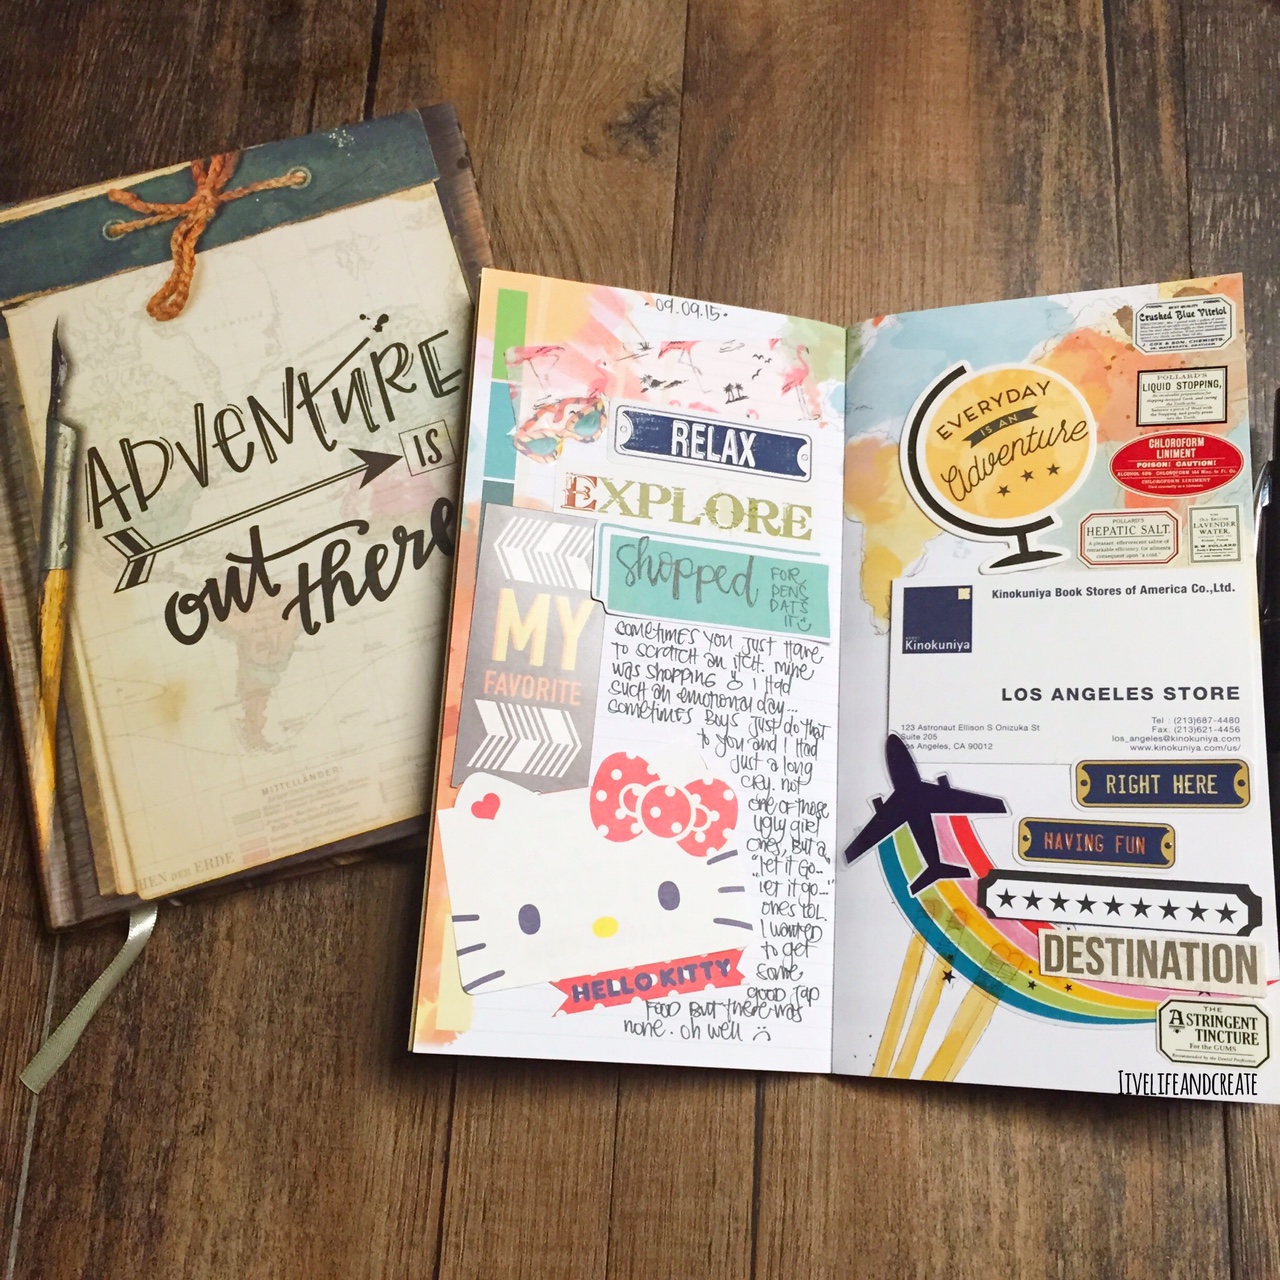 ADVENTURE
IS
out there
MITTELLÄNDER:
HEN DER ERDE
·09.09.15·
RELAX
EXPLORE
shopped
FOR
PENS
DATS
IT
MY
FAVORITE
SOMETIMES YOU JUST HAVE
TO SCRATCH AN ITCH. MINE
WAS SHOPPING I HAD
SUCH AN EMOTIONAL DAY...
SOMETIMES BOYS JUST DO THAT
TO YOU AND I HAD
JUST A LONG
CRY. NOT
ONE OF THOSE
UGLY GIRL
ONES, BUT A
"LET IT GO...
LET IT GO..."
ONES LOL.
I WANTED
TO GET
SOME
GOOD JAP
FOOD BUT THERE WAS
NONE. OH WELL
HELLO KITTY
EVERYDAY
IS AN
Adventure
Crushed Blue Vitriol
J. COX & SON, CHEMISTS,
POLLARD'S
LIQUID STOPPING,
CHLOROFORM
LINIMENT
POISON! CAUTION!
CHLOROFORM LINIMENT
POLLARD'S
HEPATIC SALT.
LAVENDER
WATER.
Kinokuniya Book Stores of America Co.,Ltd.
Kinokuniya
LOS ANGELES STORE
123 Astronaut Ellison S Onizuka St
Suite 205
Los Angeles, CA 90012
Tel : (213)687-4480
Fax: (213)621-4456
los_angeles@kinokuniya.com
www.kinokuniya.com/us/
RIGHT HERE
HAVING FUN
DESTINATION
THE
ASTRINGENT
TINCTURE
For the GUMS
IIVELIFEANDCREATE